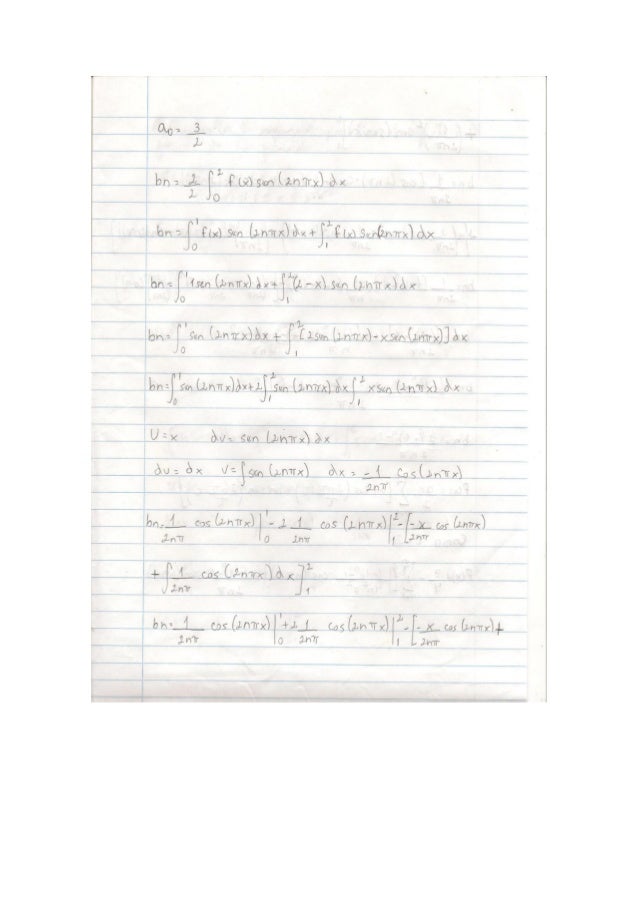 a0 = 3/2
bn = 2/2 ∫_0^2 f(x) sen (2nπx) dx
bn = ∫_0^1 f(x) sen (2nπx) dx + ∫_1^2 f(x) sen(2nπx) dx
bn = ∫_0^1 1 sen (2nπx) dx + ∫_1^2 (2-x) sen (2nπx) dx
bn = ∫_0^1 sen (2nπx) dx + ∫_1^2 [2 sen (2nπx) - x sen (2nπx)] dx
bn = ∫_0^1 sen (2nπx) dx + 2 ∫_1^2 sen (2nπx) dx ∫_1^2 x sen (2nπx) dx
U = x dv = sen (2nπx) dx
du = dx V = ∫ sen (2nπx) dx = -1/2nπ cos (2nπx)
bn = 1/2nπ cos (2nπx) |_0^1 - 2 1/2nπ cos (2nπx) |_1^2 - [-x/2nπ cos (2nπx)
+ ∫ 1/2nπ cos (2nπx) dx ]_1^2
bn = 1/2nπ cos (2nπx) |_0^1 + 2 1/2nπ cos (2nπx) |_1^2 - [-x/2nπ cos (2nπx) +